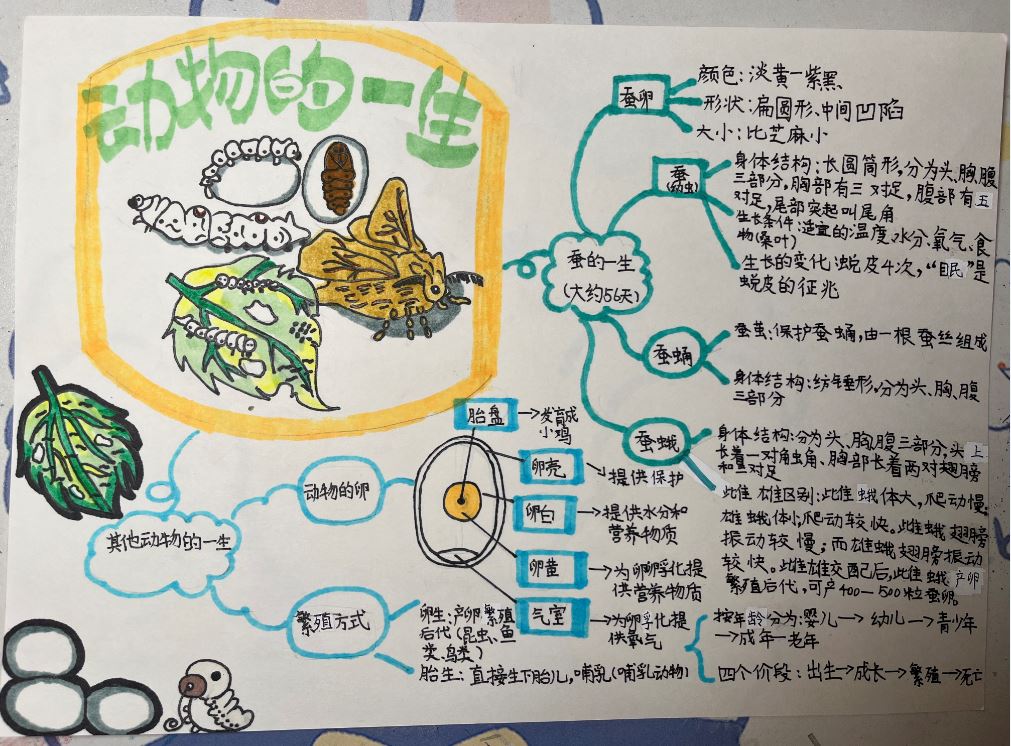 动物的一生
蚕卵
颜色：淡黄—紫黑
形状：扁圆形、中间凹陷
大小：比芝麻小
蚕
(幼虫)
身体结构：长圆筒形，分为头、胸、腹
三部分，胸部有三对足，腹部有五
对足，尾部突起叫尾角
生长条件：适宜的温度、水分、氧气、食
物(桑叶)
生长的变化：蜕皮4次，“眠”是
蜕皮的征兆
蚕的一生
(大约56天)
蚕蛹
蚕茧：保护蚕蛹，由一根蚕丝组成
身体结构：纺锤形，分为头、胸、腹
三部分
蚕蛾
身体结构：分为头、胸、腹三部分，头上
长着一对角虫角、胸部长着两对翅膀
和三对足
雌雄区别：雌蛾体大，爬动慢；
雄蛾体小，爬动较快。雌蛾翅膀
振动较慢；而雄蛾翅膀振动
较快。雌雄交配后，雌蛾产卵
繁殖后代，可产400—500粒蚕卵。
其他动物的一生
动物的卵
胎盘→发育成
小鸡
卵壳→提供保护
卵白→提供水分和
营养物质
卵黄→为卵孵化提
供营养物质
气室→为卵孵化提
供氧气
繁殖方式
卵生：产卵繁殖
后代(昆虫、鱼
类、鸟类)
胎生：直接生下胎儿，哺乳(哺乳动物)
按年龄分为：婴儿→幼儿→青少年
→成年—老年
四个阶段：出生→成长→繁殖→死亡